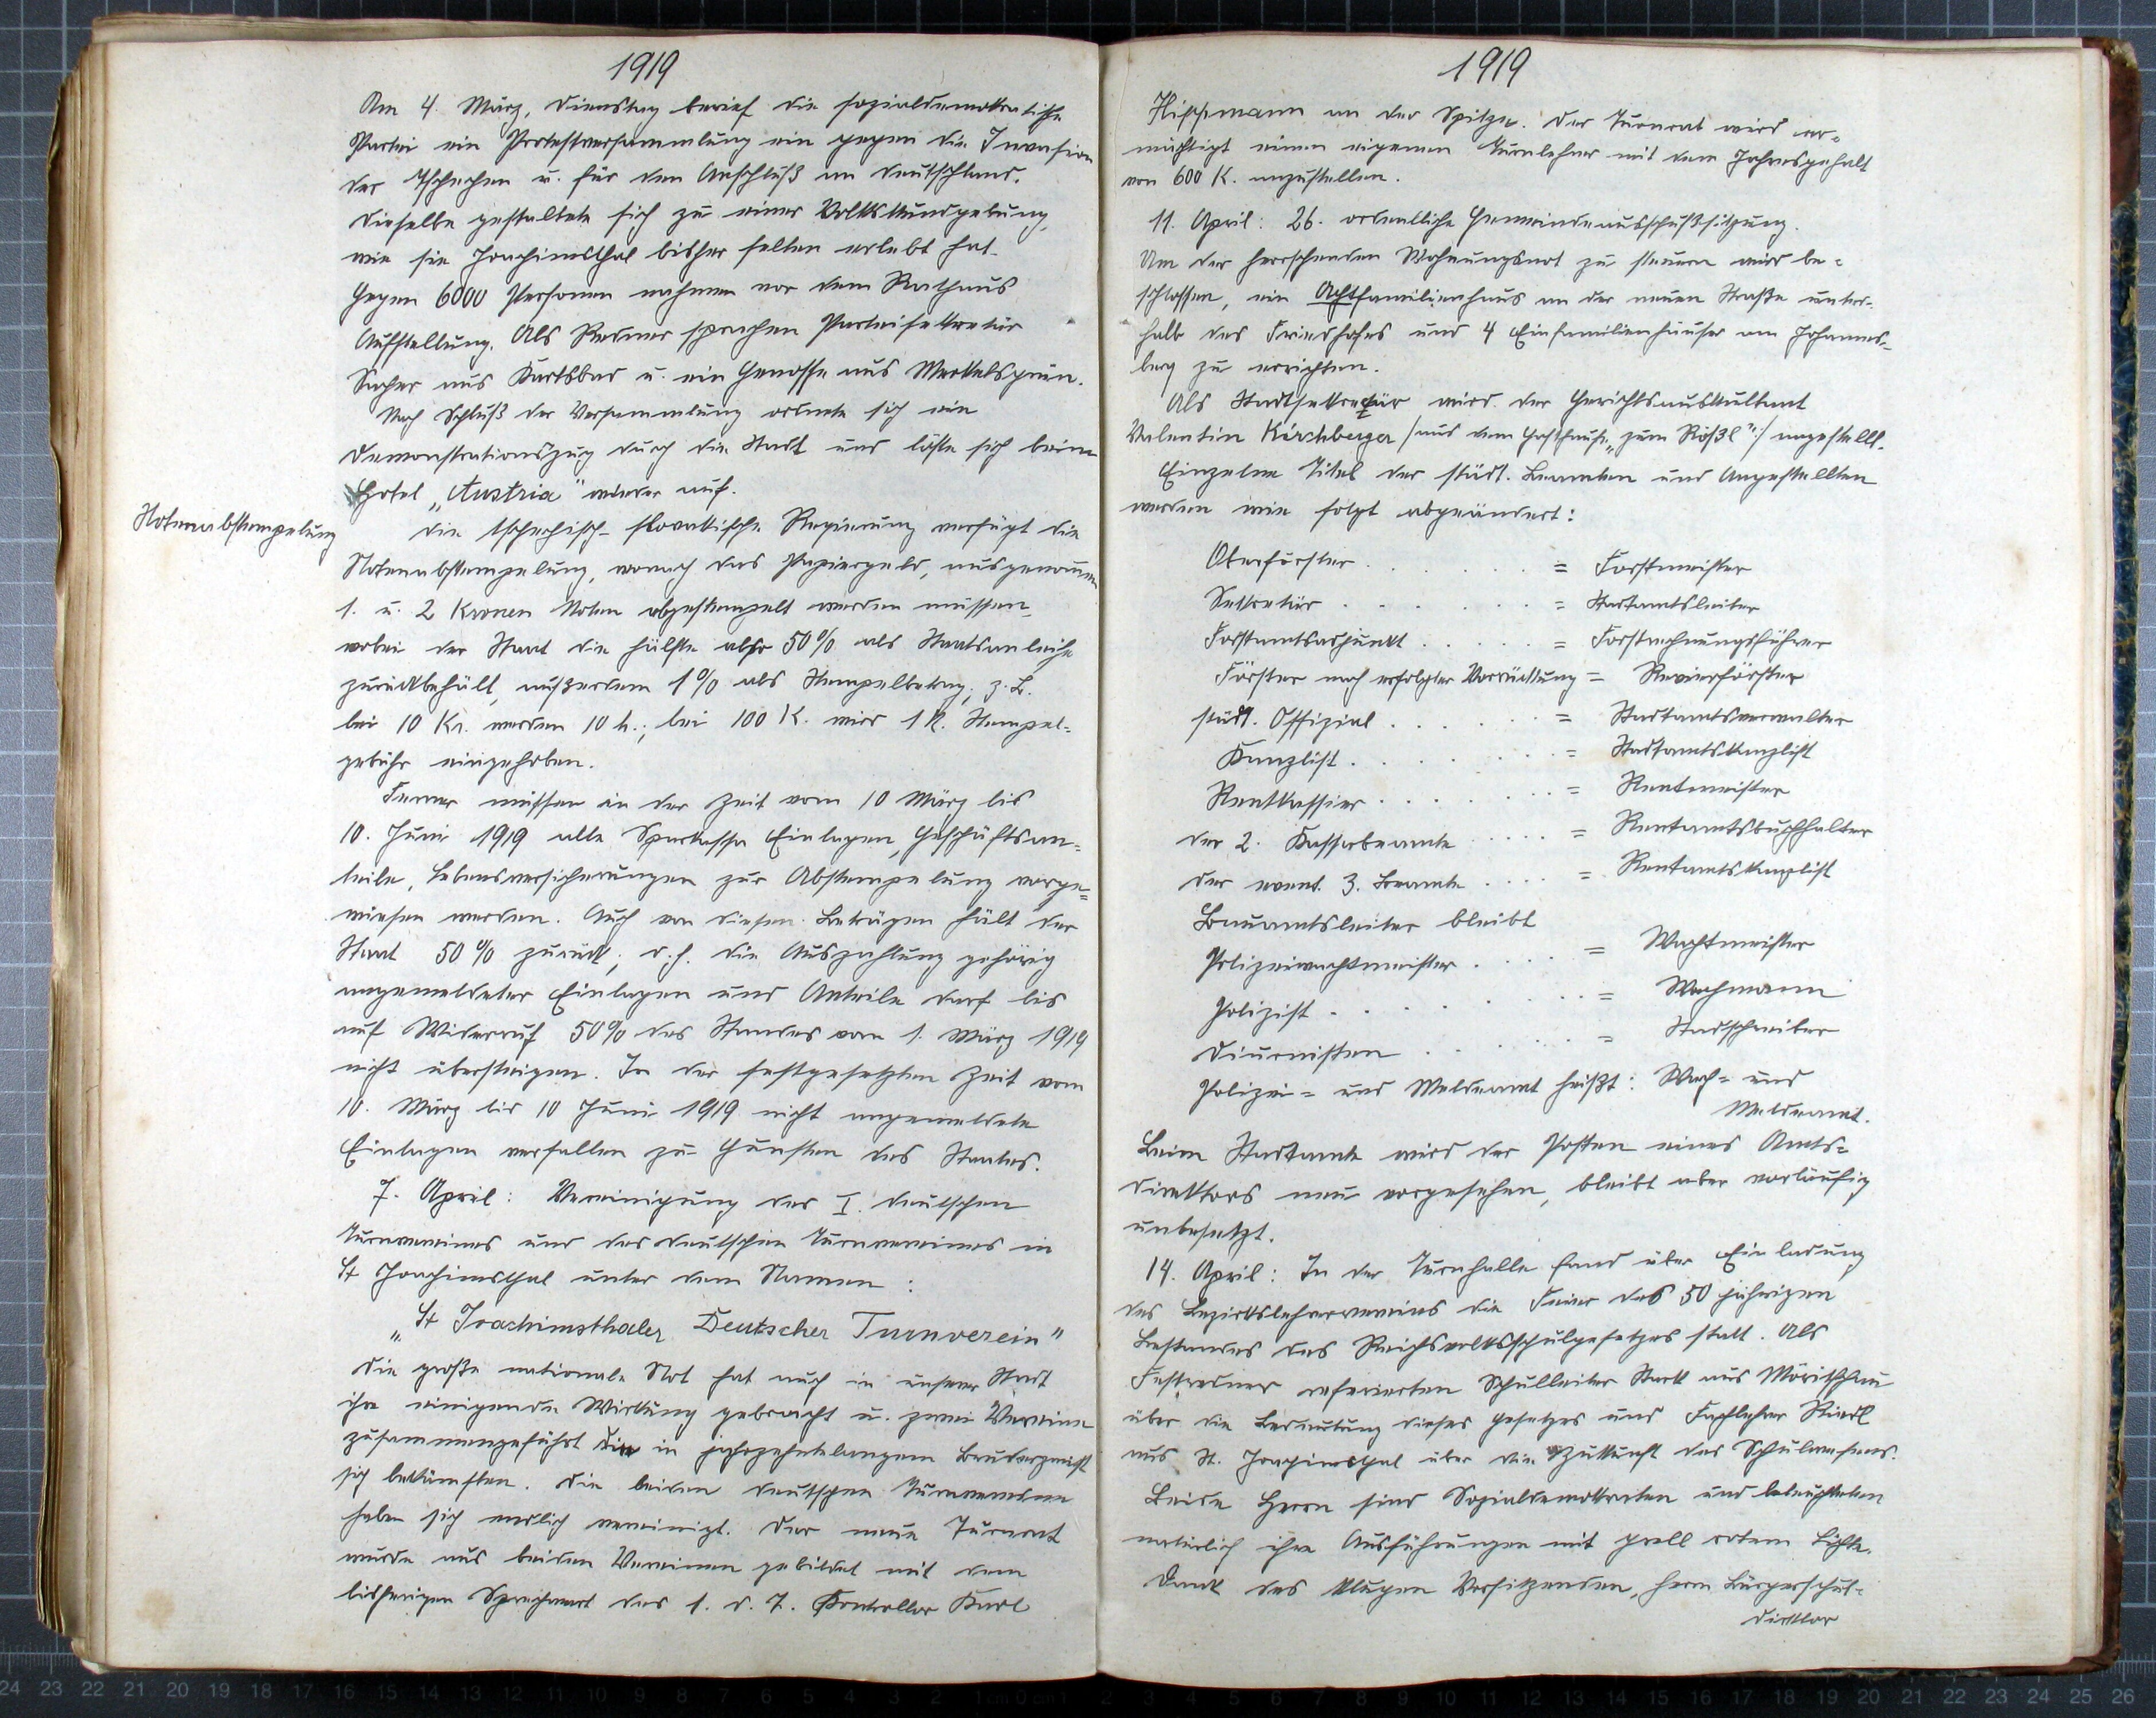 1919
Am 4. März, Dienstag berief die sozialdemokratische
Partei ein Protestversammlung ein gegen die Invasion
der Tschechen u. für den Anschluß an Deutschland.
Dieselbe gestaltete sich zu einer Volkskundgebung,
wie sie Joachimsthal bisher selten erlebt hat.
Gegen 6000 Personen nahmen vor dem Rathaus
Aufstellung. Als Redner sprachen Parteisekretär
Sacher aus Karlsbad u. ein Genosse aus Merkelsgrün.
Nach Schluß der Versammlung ordnete sich ein
Demonstrationszug durch die Stadt und löste sich beim
Hotel „Austria" wieder auf.
Notenabstempelung
Die tschechisch-slovakische Regierung verfügt die
Notenabstempelung, wonach das Papiergeld, ausgenommen
1. u. 2 Kronen Noten abgestempelt werden müssen,
wobei der Staat die Hälfte also 50% als Staatsanleihe
zurückbehält, außerdem 1% als Stempelbetrag; z. B.
bei 10 Kr. werden 10 h.; bei 100 K. wird 1 K. Stempel-
gebühr eingehoben.
Ferner müssen in der Zeit vom 10 März bis
10. Juni 1919 alle Sparkassa Einlagen, Geschäftsan-
teile, Lebensversicherungen zur Abstempelung vorge-
wiesen werden. Auch von diesen Beträgen hält der
Staat 50% zurück; d. h. die Auszahlung gehörig
angemeldeter Einlagen und Anteile darf bis
auf Widerruf 50% des Standes vom 1. März 1919
nicht übersteigen. In der festgesetzten Zeit vom
10. März bis 10 Juni 1919 nicht angemeldete
Einlagen verfallen zu Gunsten des Staates.
7. April: Vereinigung des I. deutschen
Turnvereines und des deutschen Turnvereines in
St Joachimsthal unter dem Namen:
„St Joachimsthaler Deutscher Turnverein"
Die große nationale Not hat auch in unserer Stadt
ihre einigende Wirkung gebracht u. zwei Vereine
zusammengeführt die in jahrzehntelangem Bruderzwist
sich bekämpften. Die beiden deutschen Turnvereine
haben sich endlich vereinigt. Der neue Turnrat
wurde aus beiden Vereinen gebildet mit dem
bisherigen Sprechwart des 1. d. T. Kontrollor Karl
1919
Hippmann an der Spitze. Der Turnrat wird er-
mächtigt einen eigenen Turnlehrer mit dem Jahresgehalt
von 600 K. anzustellen.
11. April: 26. ordentliche Gemeindeausschußsitzung.
Um der herrschenden Wohnungsnot zu steuern wird be-
schlossen, ein Achtfamilienhaus an der neuen Straße unter-
halb des Friedhofes und 4 Einfamilienhäuser am Johannes-
berg zu errichten.
Als Stadtsekretär wird der Gerichtsauskultant
Valentin Kirchberger /aus dem Gasthause „zum Rößl":/ angestellt.
Einzelne Titel der städt. Beamten und Angestellten
werden wie folgt abgeändert:
Oberförster . . . . . . = Forstmeister
Sekretär . . . . . . = Stadtamtsleiter
Forstamtsadjunkt . . . . . = Forstrechnungsführer
Förster nach erfolgter Vorrückung = Revierförster
städt. Offizial . . . . . = Stadtamtsverwalter
Kanzlist . . . . . . = Stadtamtskanzlist
Rentkassier . . . . . . = Rentmeister
der 2. Kassabeamte . . . . = Rentamtsbuchhalter
der event. 3. Beamte . . . . = Rentamtskanzlist
Bauamtsleiter bleibt
Polizeiwachtmeister . . . . = Wachtmeister
Polizist . . . . . . . = Wachmann
Diurnisten . . . . . . = Stadtschreiber
Polizei- und Meldeamt heißt: Wach- und
Meldeamt.
Beim Stadtamte wird der Posten eines Amts-
direktors neu vorgesehen, bleibt aber vorläufig
unbesetzt.
14. April: In der Turnhalle fand über Einladung
des Bezirkslehrervereins die Feier des 50 jährigen
Bestandes des Reichsvolksschulgesetzes statt. Als
Festredner referierten Schulleiter Stark aus
über die Bedeutung dieses Gesetzes und Fachlehrer Riedl
aus St. Joachimsthal über die Zukunft des Schulwesens.
Beide Herrn sind Sozialdemokraten und beleuchteten
natürlich ihre Ausführungen mit grell rotem Lichte.
Dank des klugen Vorsitzenden, Herrn Bürgerschul-
direktor